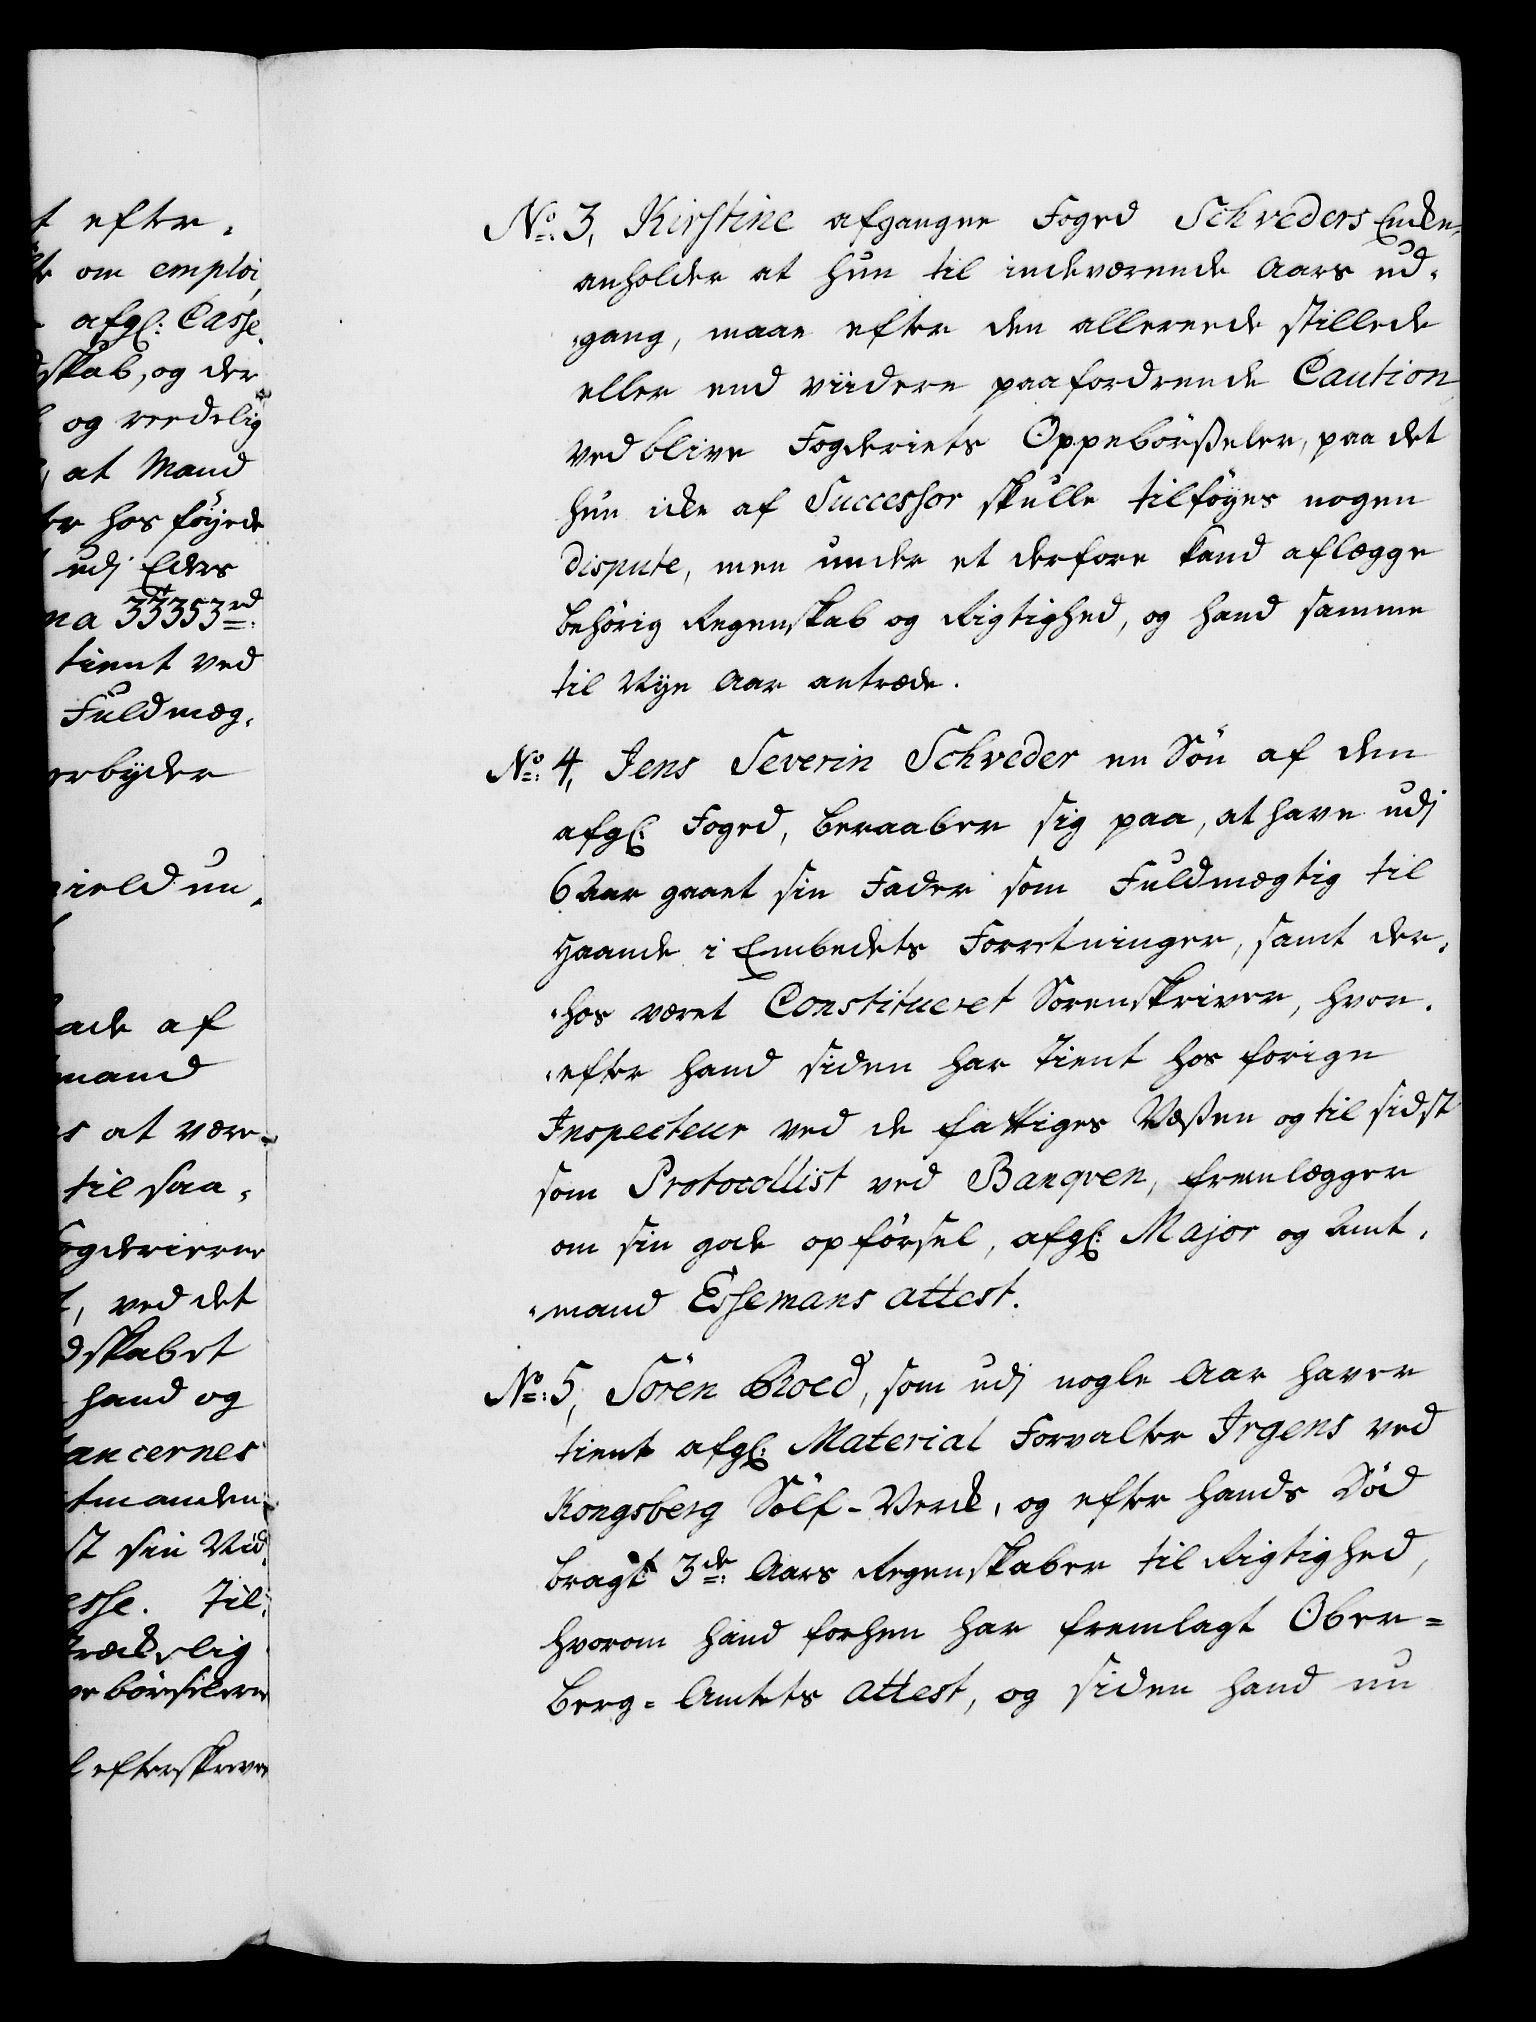 t efter,
om emploi
afgl: Casse,
skab, og der
og reedelig
at Mand
hos föyede
udj Eders
na 33353rd:
tient ved
Fuldmæg,
erbyder
ield un,
ade af
mand
s at være
til saa,
ogderierne
t, ved det
dskabet
hand og
ancernes
tmanden
st sin Vid,
esse. Til,
rækkelig
börselerne
efterskrevne
No: 3, Kirstine afgangne Foged Schreders Encke,
anholder at hun til indeværende Aars ud,
,gang, maae efter den allereede stillede
eller end viidere paafordrende Caution
vedblive Fogderiets Oppebörßeler, paa det
hun icke af Successor skulle tilföyes nogen
Dispute, men under et derfore kand aflægge
behörig Regenskab og Rigtighed, og hand samme
til Nye Aar antræde.
No: 4, Jens Severin Schreder en Sön af den
afgl: Foged, beraaber sig paa, at have udj
6 Aar gaaet sin Fader som Fuldmægtig til
Haande i Embedets Forretninger, samt der,
,hos været Constitueret Sorenskriver, hvor,
,efter hand siden har tient hos forige
Inspecteur ved de fattiges Væßen og til sidst
som Protocollist ved Banqven, fremlægger
om sin gode opförsel, afgl: Major og Amt,
,mand Essemans attest.
No: 5, Sören Roed, som udj nogle Aar haver
tient afgl: Material Forvalter Irgens ved
Kongsberg Sölf-Verck, og efter hands Död
bragt 3de: Aars Regenskaber til Rigtighed,
hvorom hand forhen har fremlagt Ober=
Berg=Amtets attest, og siden hand nu